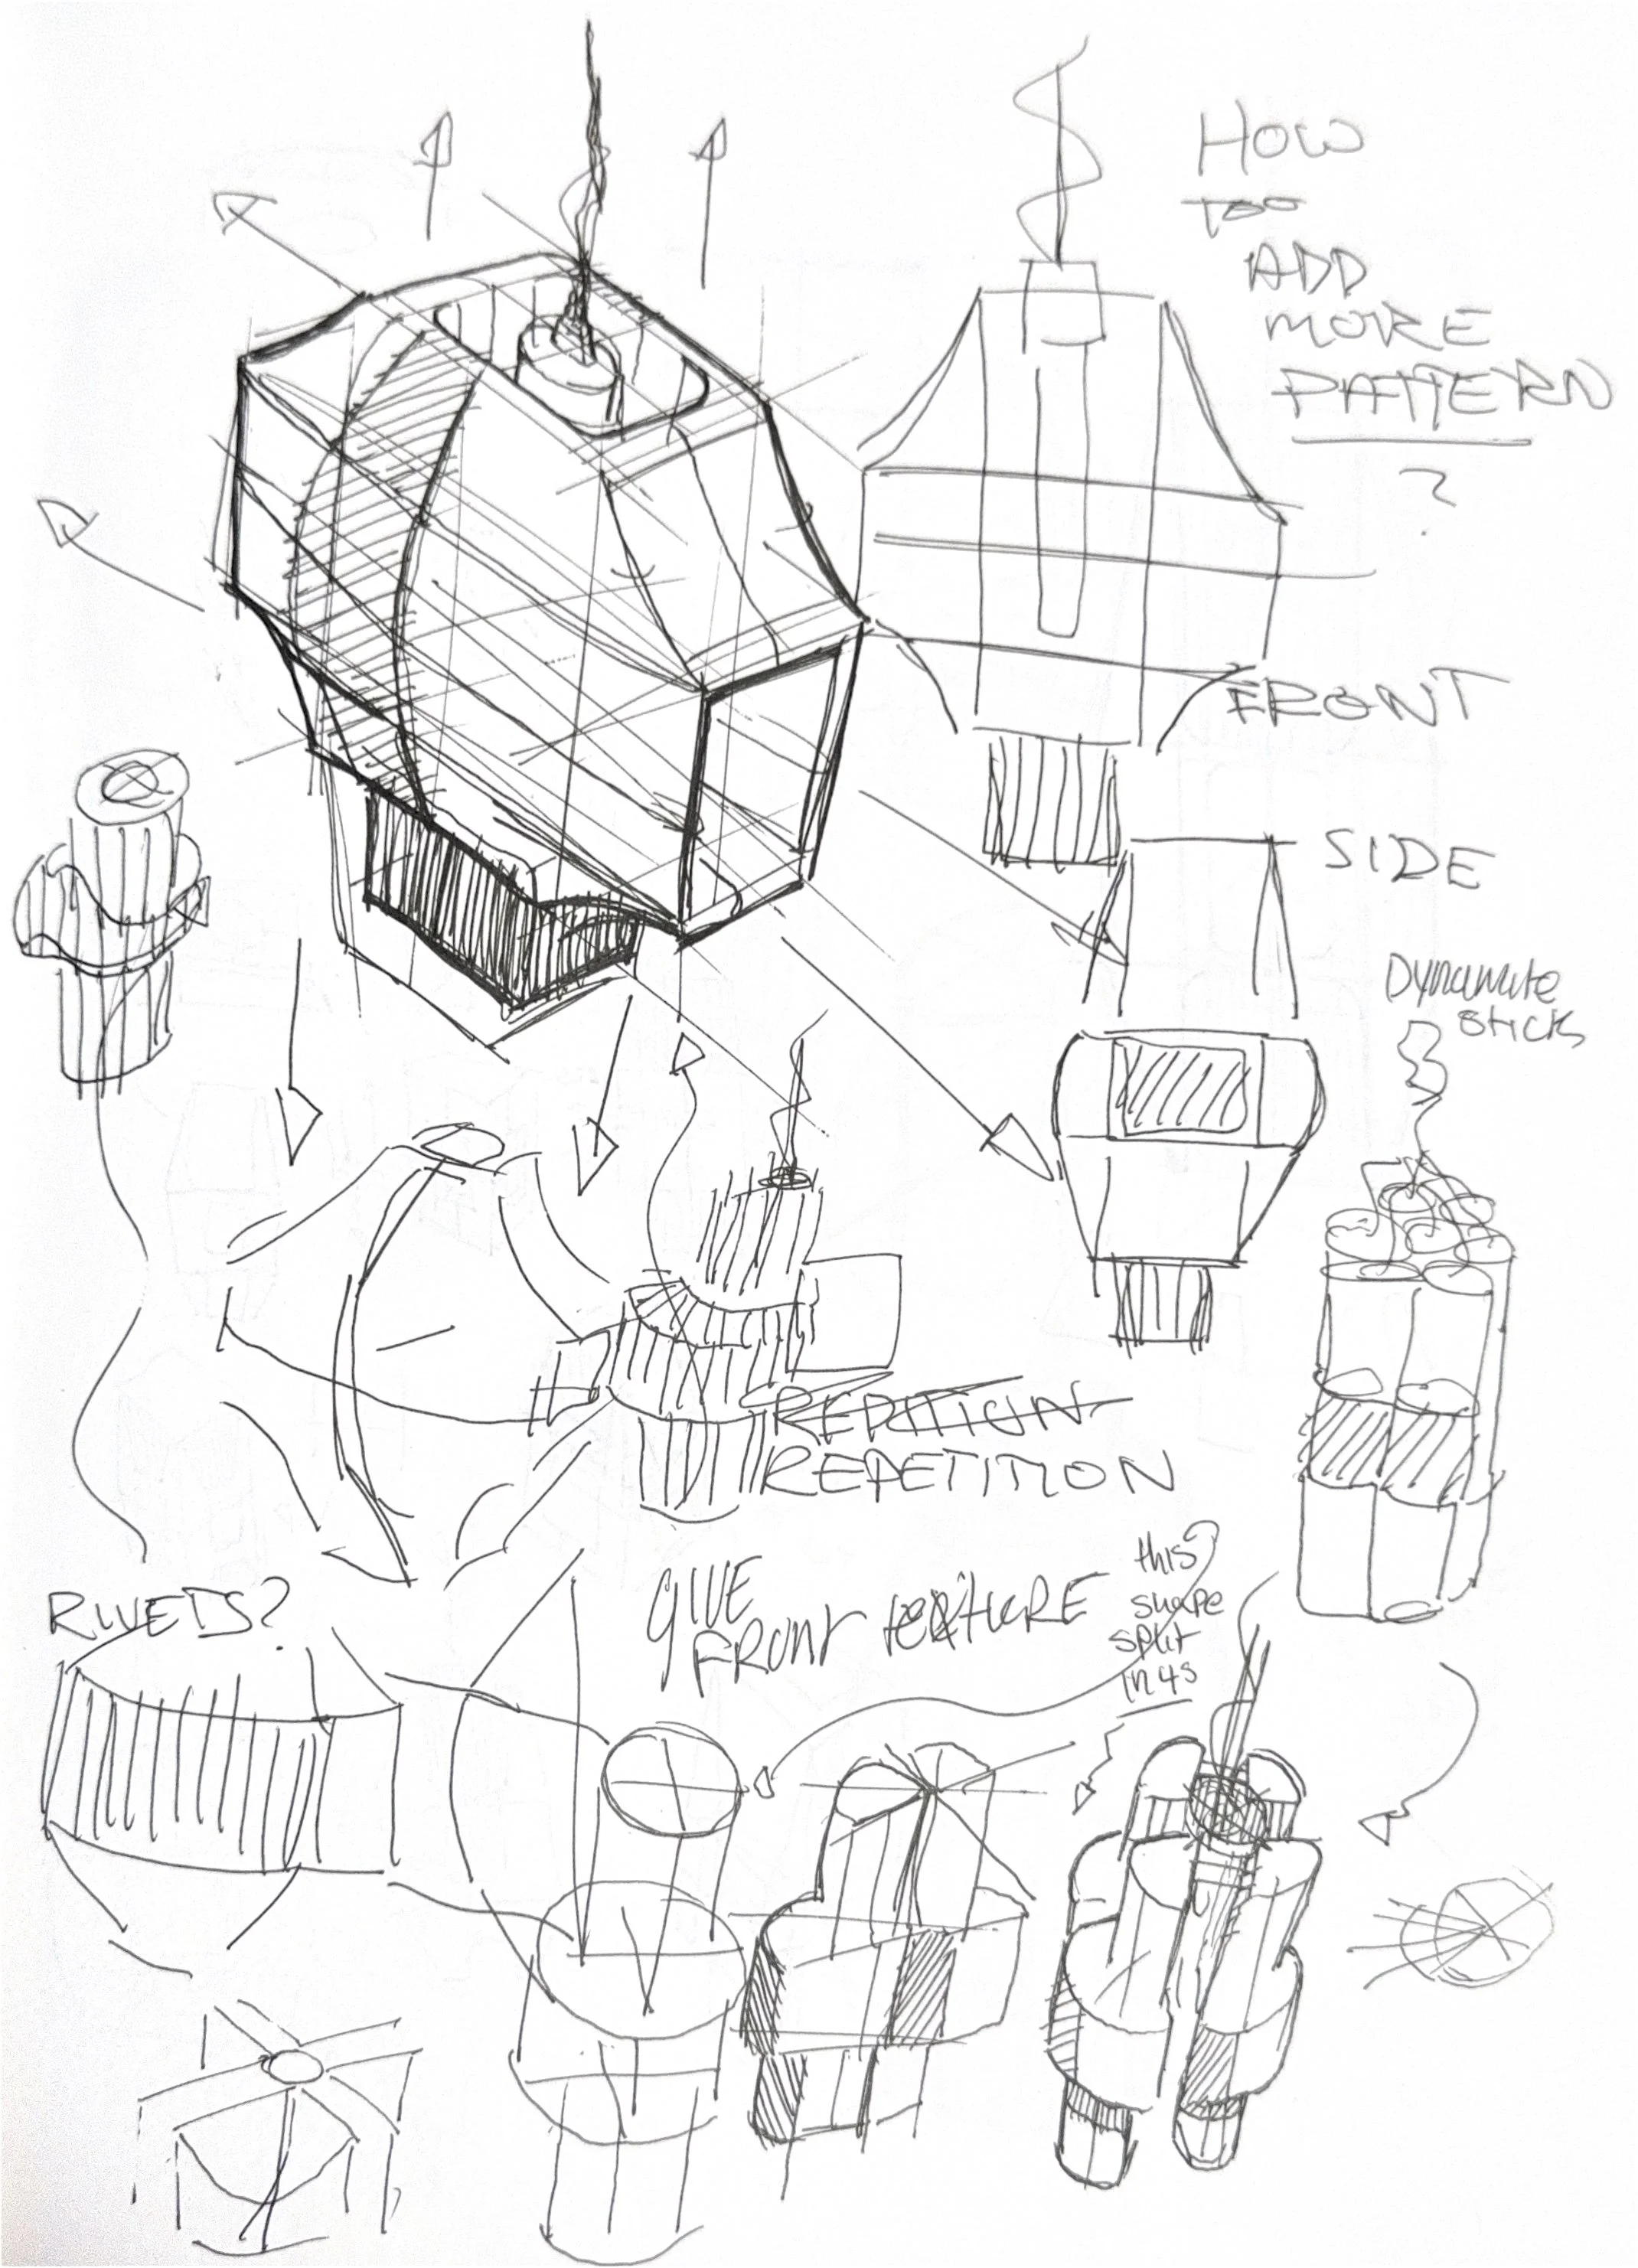 HOW
TOO
ADD
MORE
PATTERN
?
FRONT
SIDE
Dynamite
sticks
REPITION
REPETITION
RIVETS?
GIVE
FRONT TEXTURE
this
shape
split
in 4s